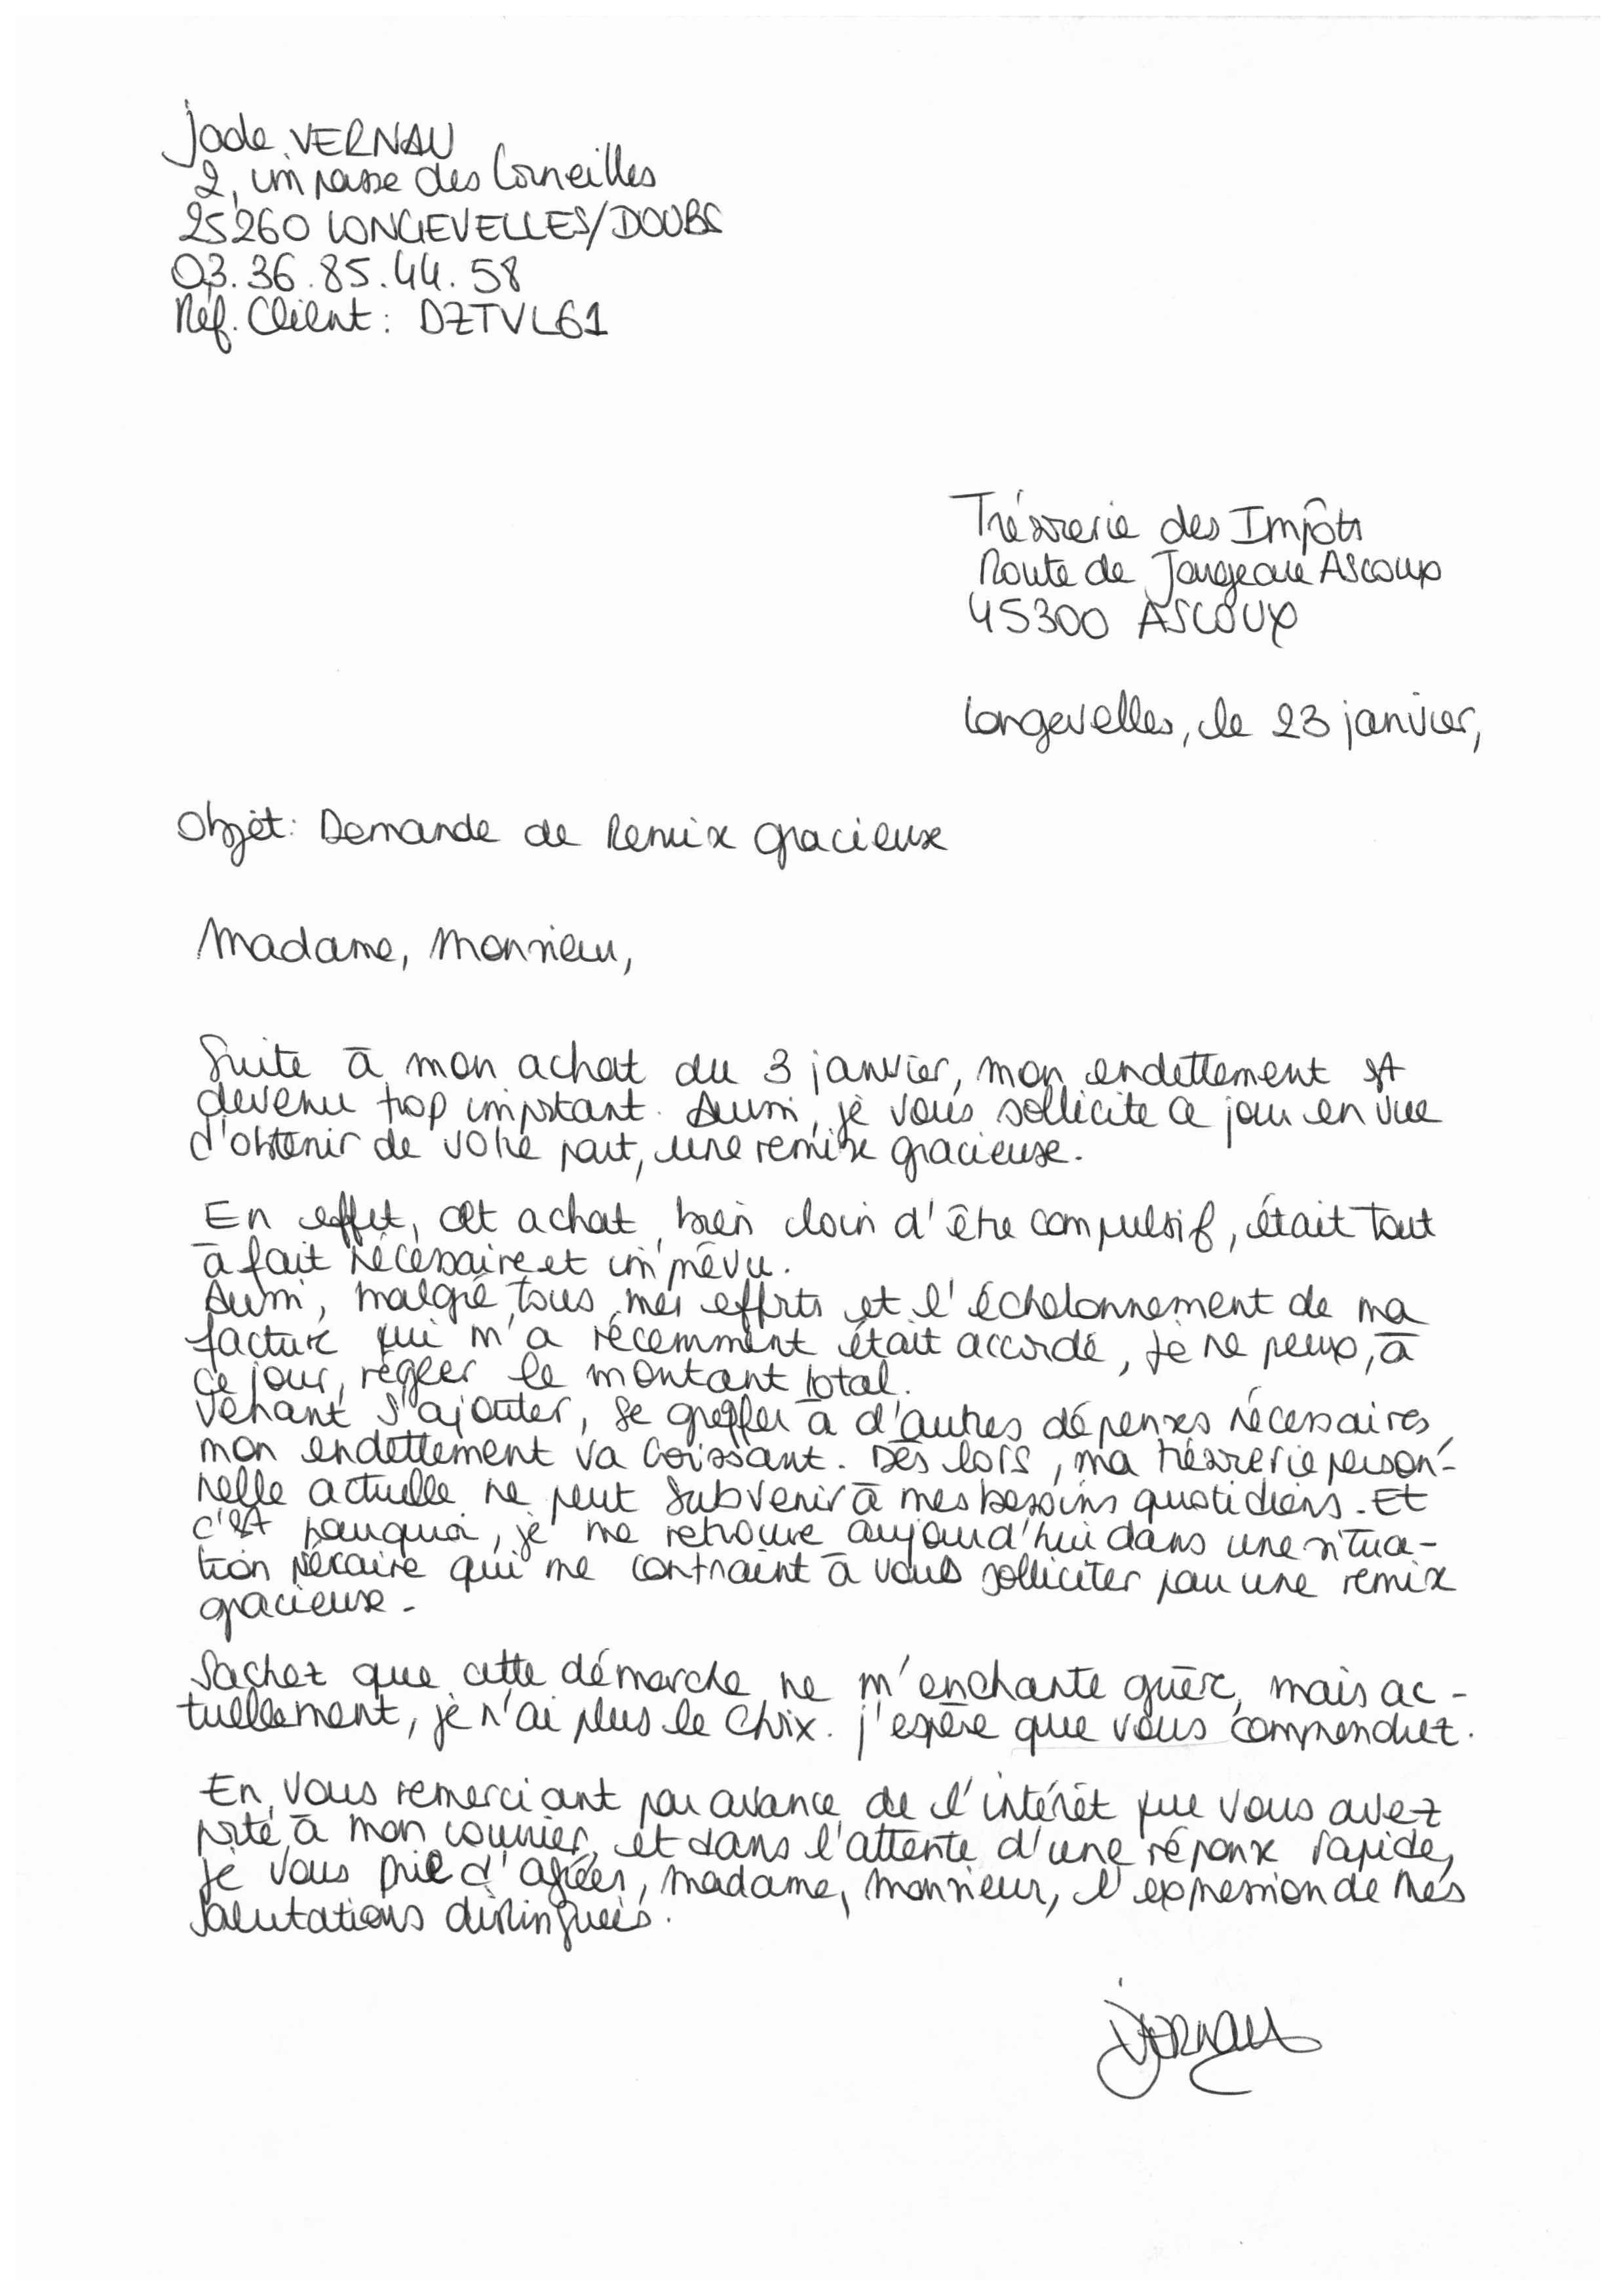 Jade VERNAU
2, impasse des Corneilles
25260 LONGEVELLES/DOUBS
03.36.85.44.58
Réf. Client : DZTVL61
Trésorerie des Impôts
Route de Jargeau Ascoux
45300 ASCOUX
Longevelles, le 23 janvier,
Objet : Demande de Remise gracieuse
Madame, Monsieur,
Suite à mon achat du 3 janvier, mon endettement est
devenu trop important. Aussi, je vous sollicite ce jour en vue
d'obtenir de votre part, une remise gracieuse.
En effet, cet achat, bien loin d'être compulsif, était tout
à fait nécessaire et imprévu.
Aussi, malgré tous mes efforts et l'échelonnement de ma
facture qui m'a récemment était accordé, je ne peux, à
ce jour, régler le montant total.
Venant s'ajouter, se greffer à d'autres dépenses nécessaires,
mon endettement va croissant. Dès lors, ma trésorerie person-
nelle actuelle ne peut subvenir à mes besoins quotidiens. Et
c'est pourquoi, je me retrouve aujourd'hui dans une situa-
tion précaire qui me contraint à vous solliciter pour une remise
gracieuse.
Sachez que cette démarche ne m'enchante guère, mais ac-
tuellement, je n'ai plus le choix. J'espère que vous comprendrez.
En vous remerciant par avance de l'intérêt que vous avez
porté à mon courrier, et dans l'attente d'une réponse rapide,
je vous prie d'agréer, Madame, Monsieur, l'expression de mes
salutations distinguées.
JVERNAU